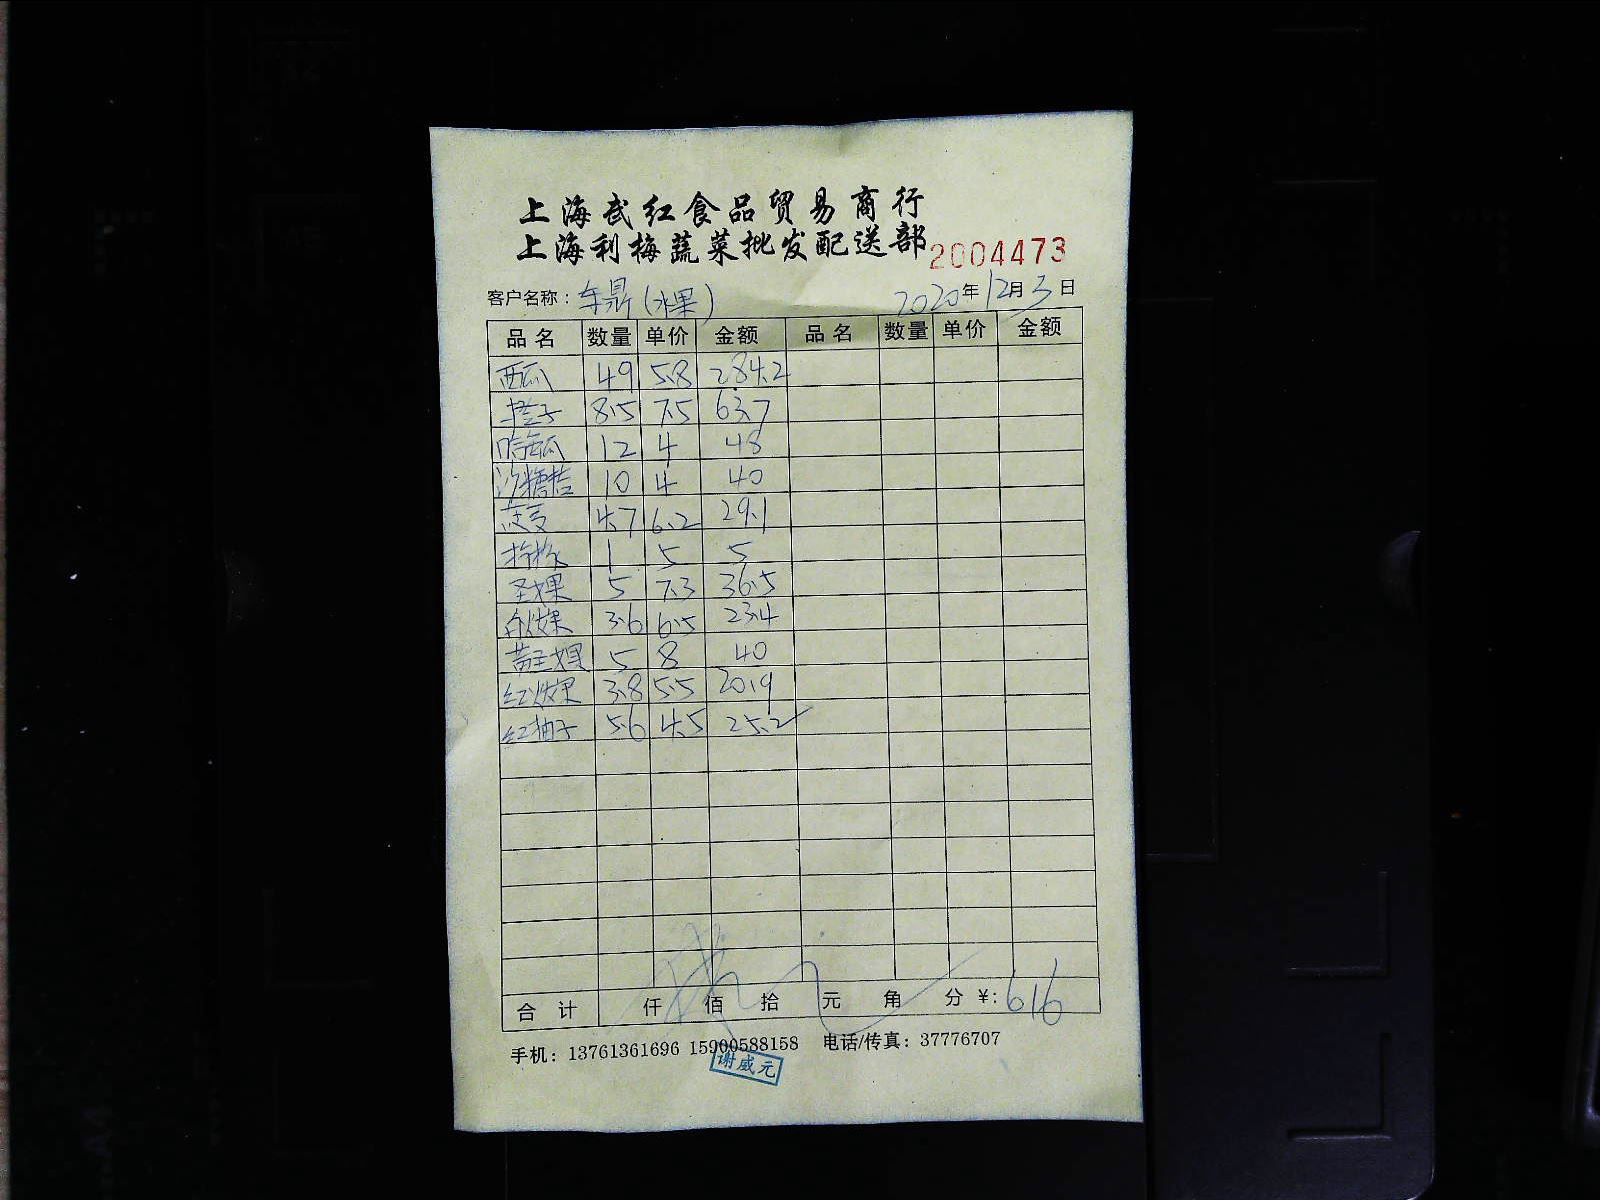 上海武红食品贸易商行
上海利梅蔬菜批发配送部 2004473
客户名称：车鼎(水果) 2020年12月3日
品名 数量 单价 金额 品名 数量 单价 金额
西瓜 49 5.8 284.2
橙子 8.5 7.5 63.7
哈密瓜 12 4 48
沙糖桔 10 4 40
4.7 6.2 29.1
柠檬 1 5 5
圣女果 5 7.3 36.5
3.6 6.5 23.4
黄圣女果 5 8 40
3.8 5.5 20.9
红柚子 5.6 4.5 25.2
合计 仟 佰 拾 元 角 分 ¥: 616
手机：13761361696 15900588158 电话/传真：37776707
谢威元